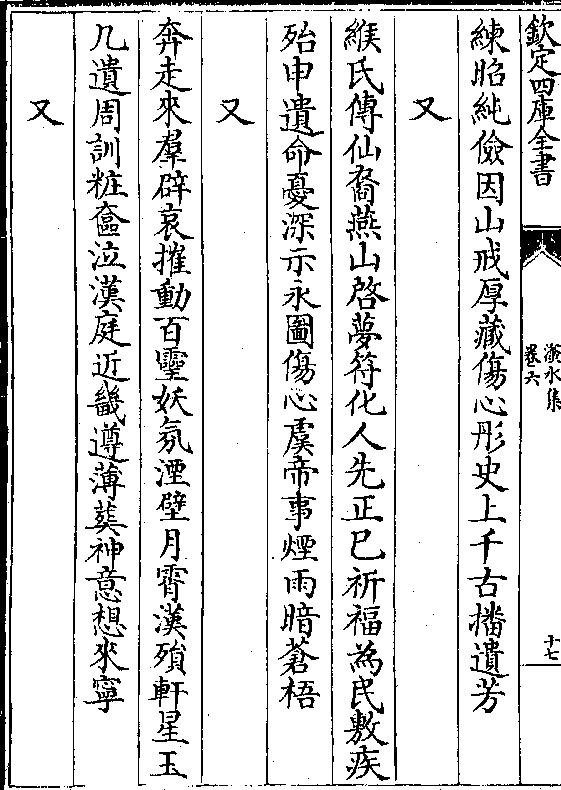 欽定四庫全書
滏水集
卷六
十七
練昭純儉因山戒厚藏傷心彤史上千古播遺芳
又
緱氏傳仙裔燕山啓夢符化人先正已祈福為民敷疾
殆申遺命憂深示永圖傷心虞帝事煙雨暗蒼梧
又
奔走來羣辟哀摧動百靈妖氛湮壁月霄漢殞軒星玉
几遺周訓粧奩泣漢庭近畿遵薄葬神意想來寧
又